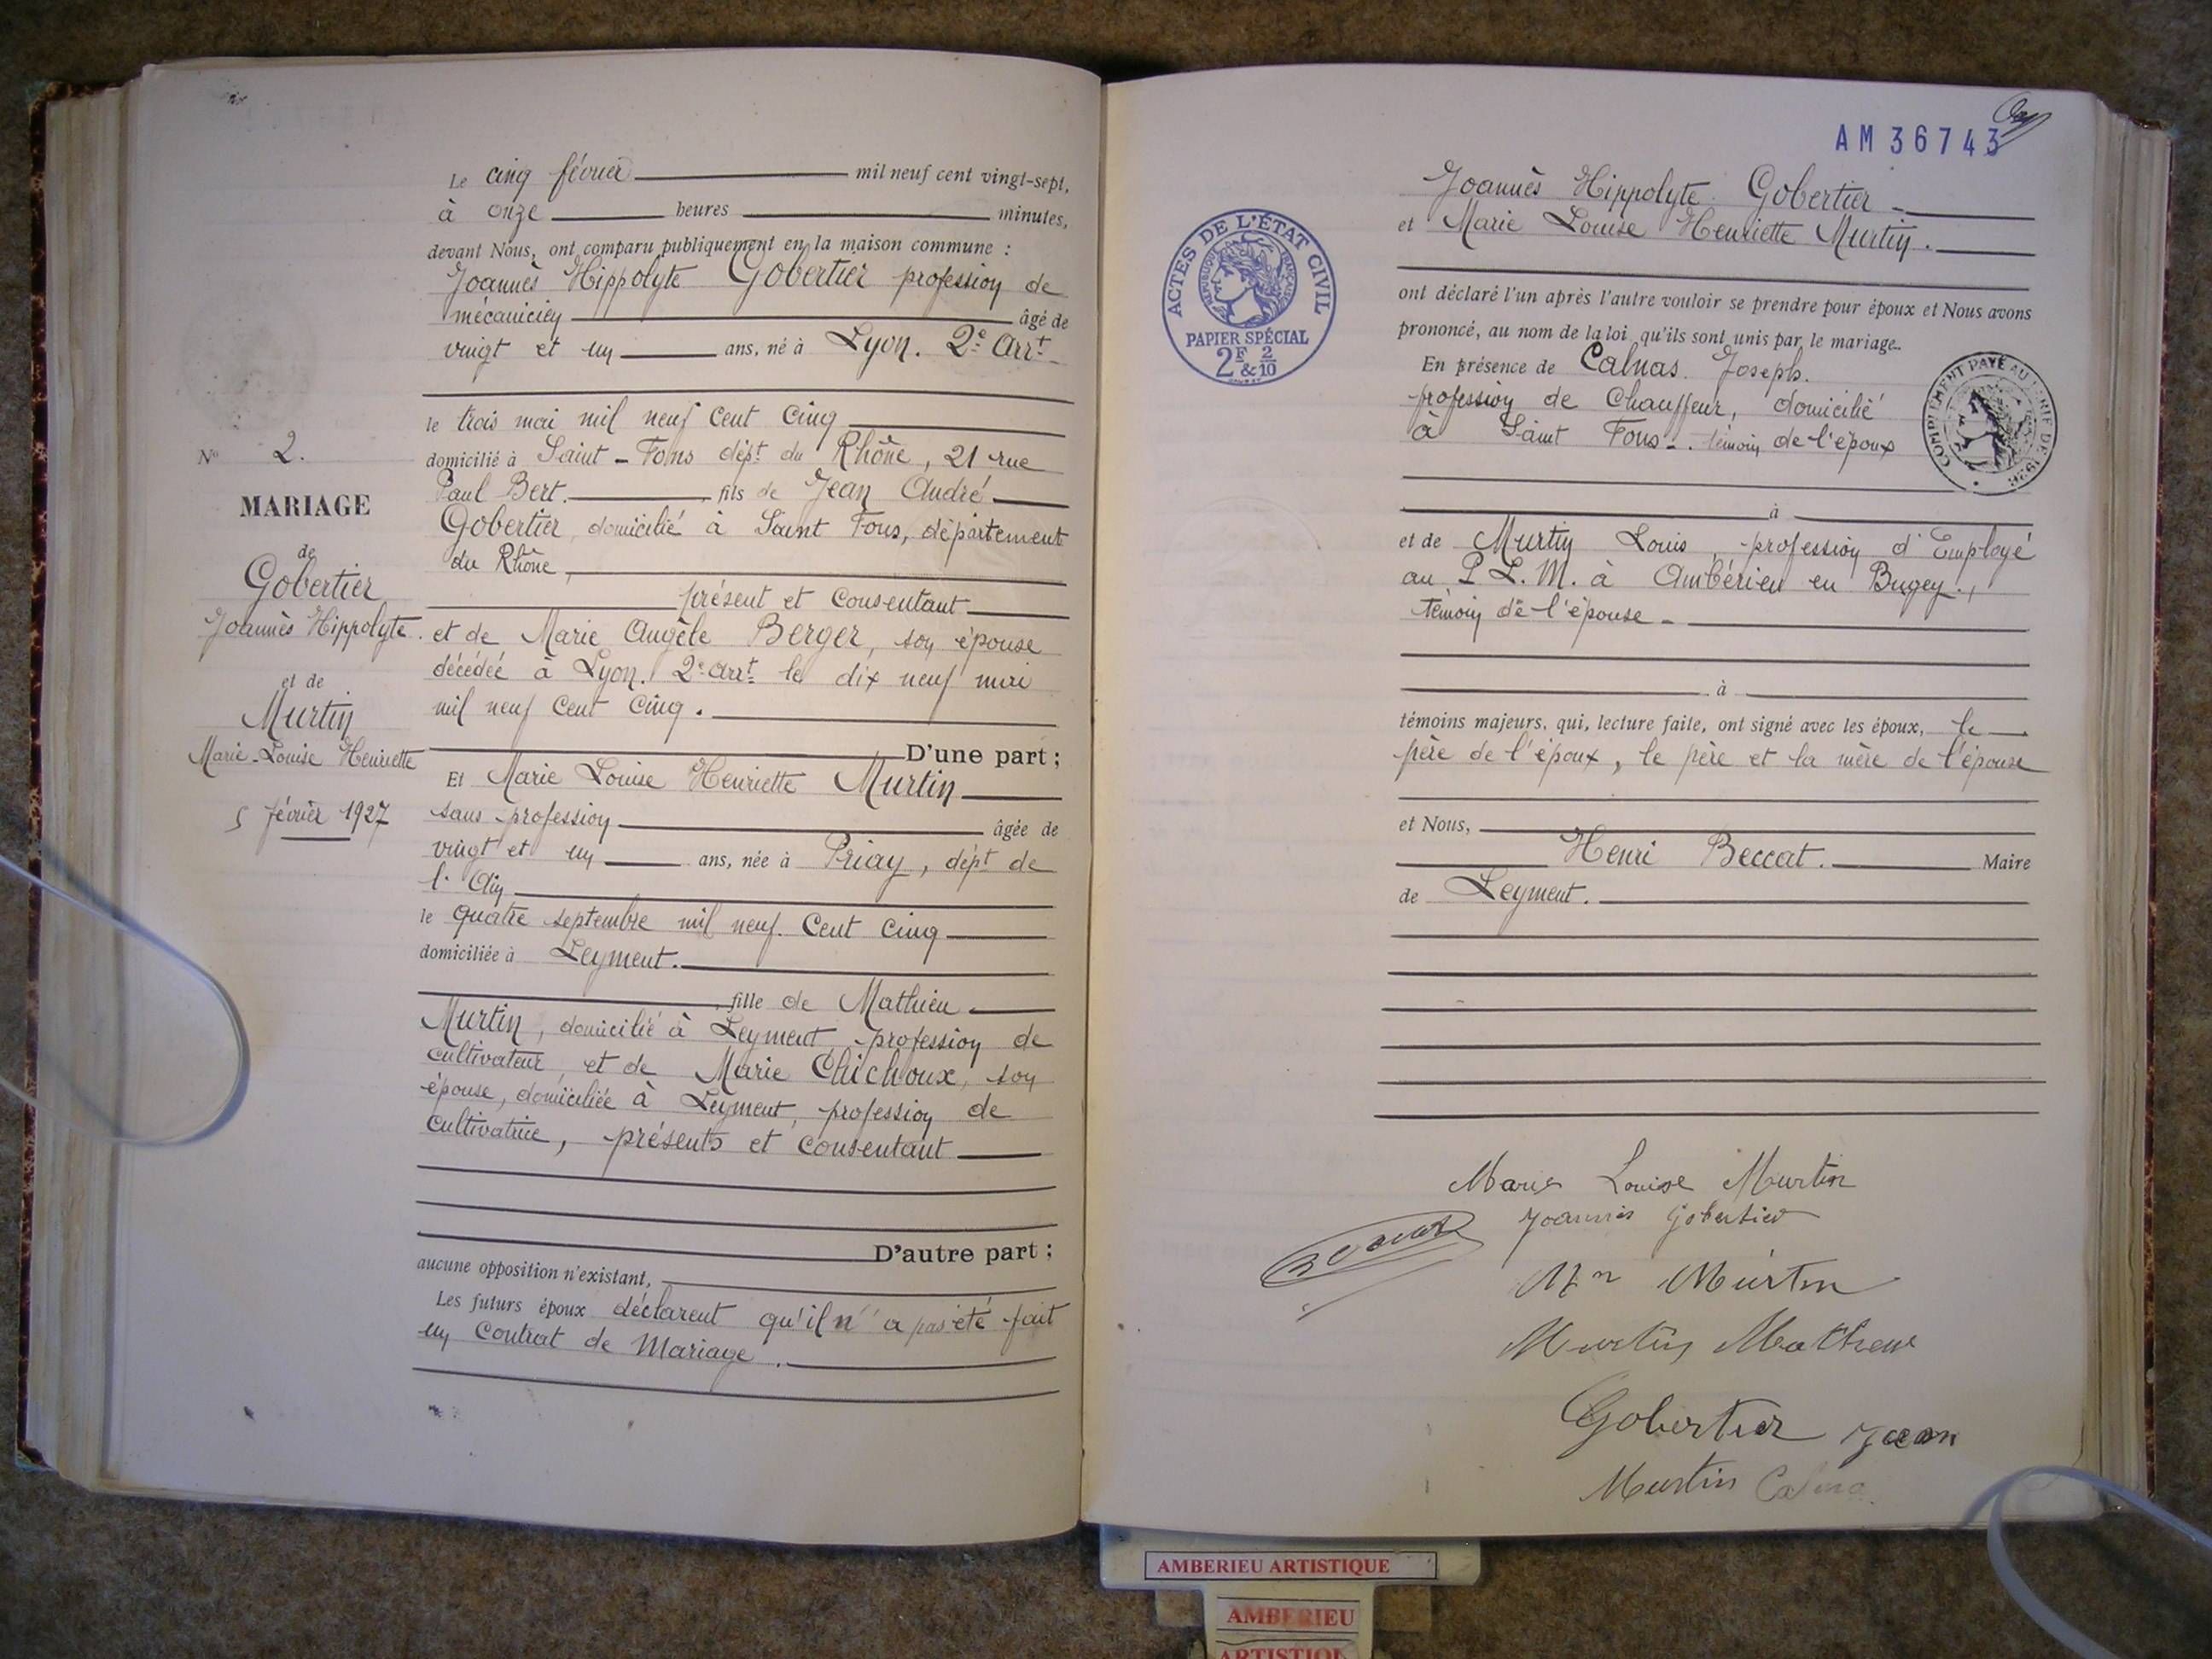 Le cinq février mil neuf cent vingt-sept,
à onze heures minutes,
devant Nous, ont comparu publiquement en la maison commune :
Joannès Hippolyte Gobertier profession de
mécanicien âgé de
vingt et un ans, né à Lyon. 2e Arrt
le trois mai mil neuf cent cinq
domicilié à Saint-Fons dépt du Rhône, 21 rue
Paul Bert. fils de Jean André
Gobertier, domicilié à Saint Fons, département
du Rhône,
présent et consentant
et de Marie Angèle Berger, son épouse
décédée à Lyon. 2e arrt le dix neuf mai
mil neuf cent cinq.
D'une part ;
Et Marie Louise Henriette Murtin
sans profession âgée de
vingt et un ans, née à Priay, dépt de
l'Ain
le quatre septembre mil neuf. cent cinq
domiciliée à Leyment.
fille de Mathieu
Murtin, domicilié à Leyment, profession de
cultivateur, et de Marie Chichoux, son
épouse, domiciliée à Leyment, profession de
cultivatrice, présents et consentant
D'autre part ;
aucune opposition n'existant,
Les futurs époux déclarent qu'il n'a pas été fait
un contrat de Mariage.
No 2.
MARIAGE
de
Gobertier
Joannès Hippolyte.
et de
Murtin
Marie-Louise Henriette
5 février 1927
AM 36743
ACTES DE L'ÉTAT CIVIL
RÉPUBLIQUE FRANÇAISE
PAPIER SPÉCIAL
2F & 2/10
Joannès Hippolyte Gobertier
et Marie Louise Henriette Murtin.
ont déclaré l'un après l'autre vouloir se prendre pour époux et Nous avons
prononcé, au nom de la loi, qu'ils sont unis par le mariage.
En présence de Calnas Joseph.
profession de Chauffeur, domicilié
à Saint Fons. témoin de l'époux
COMPLÉMENT PAYÉ AU TARIF DE 1926
à
et de Murtin Louis, profession d'Employé
au P.L.M. à Ambérieu en Bugey.,
témoin de l'épouse
à
témoins majeurs, qui, lecture faite, ont signé avec les époux, le
père de l'époux, le père et la mère de l'épouse
et Nous,
Henri Beccat. Maire
de Leyment.
Marie Louise Murtin
Joannès Gobertier
Mn Murtin
Murtin Mathieu
Gobertier Jean
Murtin
AMBERIEU ARTISTIQUE
AMBERIEU